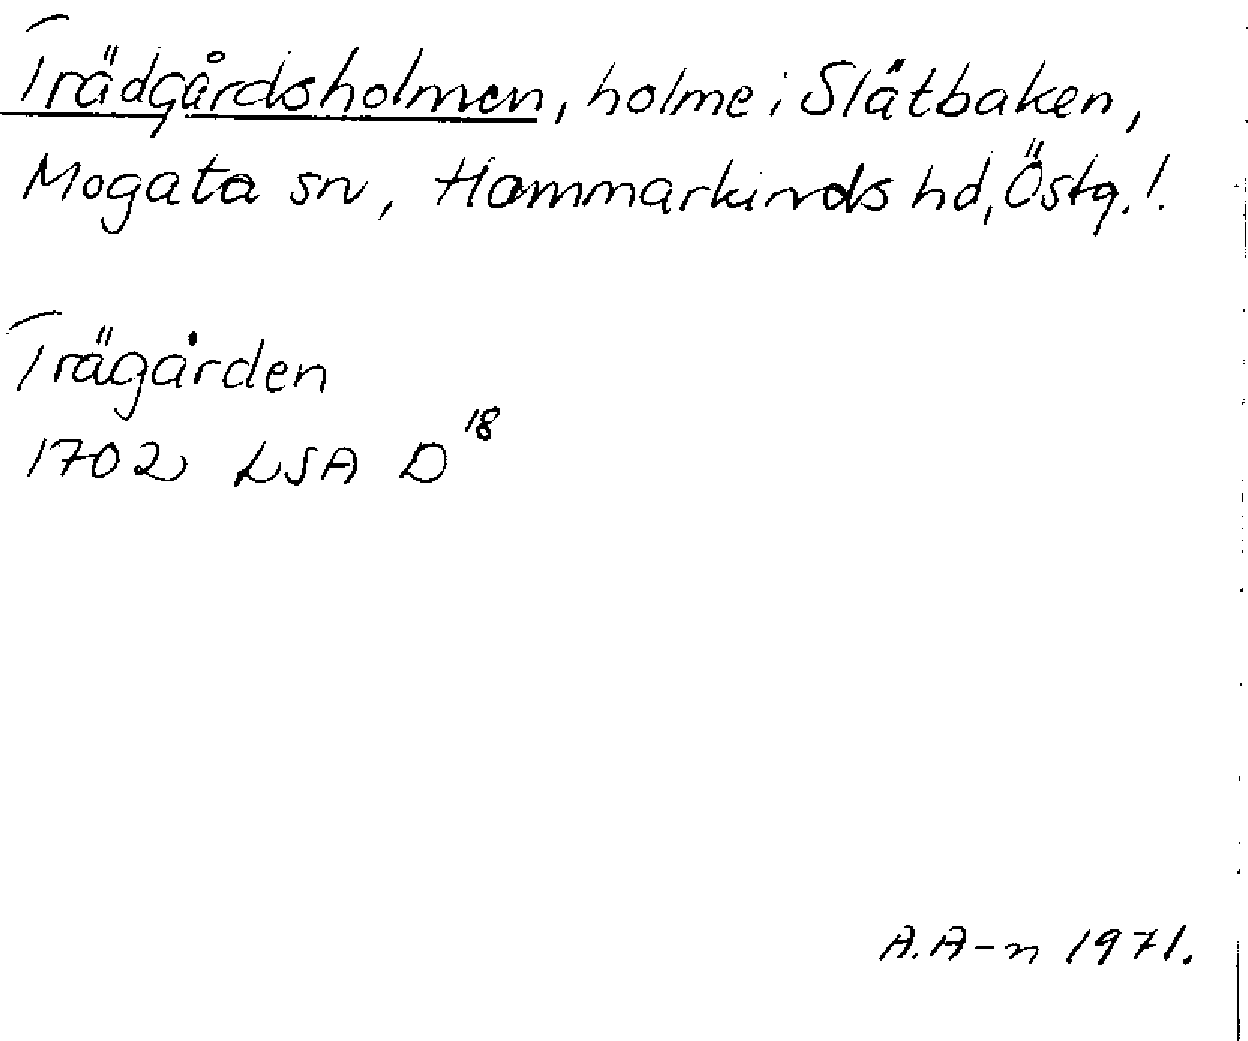 Trädgårdsholmen, holme i Slätbaken,
Mogata sn, Hammarkinds hd, Östg. l.
Trägården
1702 LSA D 18
A.A-n 1971.